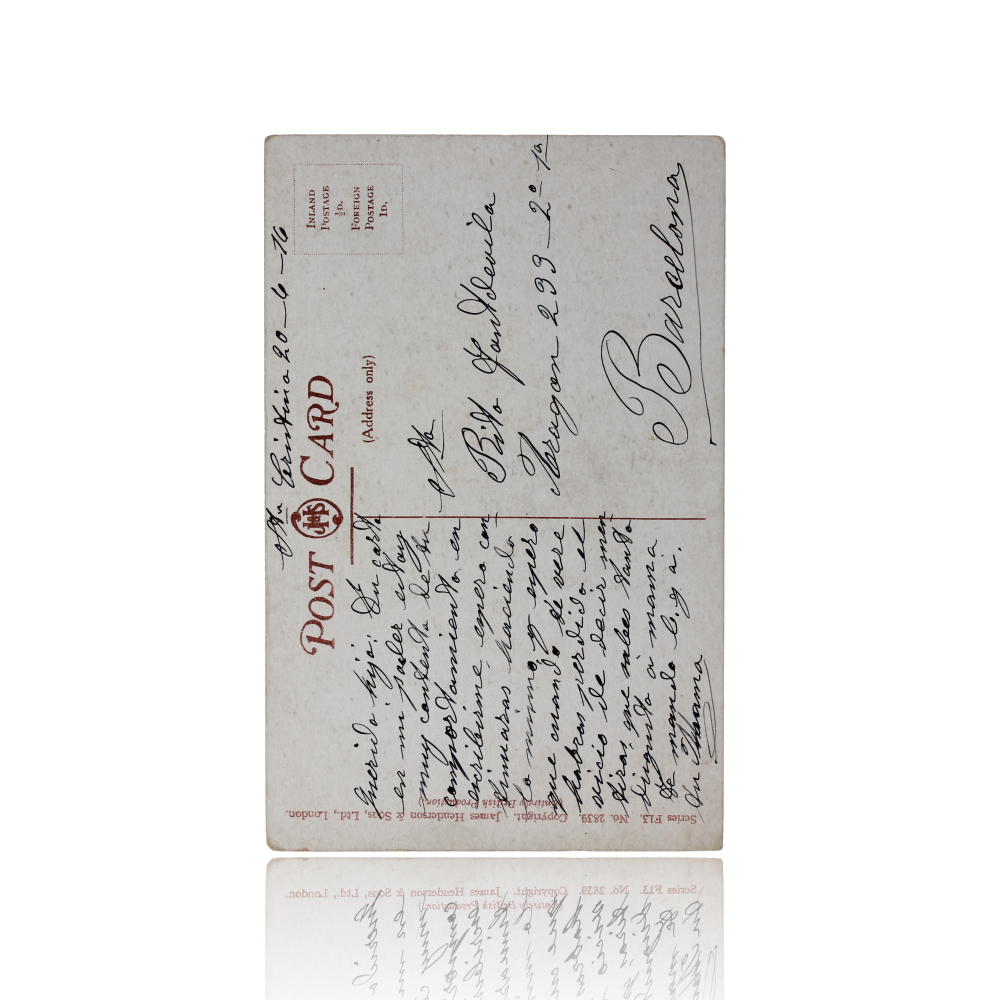 Sta Cristina 20-6-16
POST CARD
JHS
(Address only)
INLAND
POSTAGE
½D.
FOREIGN
POSTAGE
1D.
Querido hijo: Tu carta
en mi poder estoy
muy contenta de tu
comportamiento en
escribirme espero con
tinuaras haciendo
lo mismo, y espero
que cuando te vere
habras perdido el
vicio de decir men
tiras que sabes tanto
disgusta à mama
Te mando
tu Mama
Sta
Bita Fontdevila
Aragon 233-2º 1ª
Barcelona
Series F13. No. 2839. Copyright. James Henderson & Sons, Ltd., London.
(Entirely British Production.)